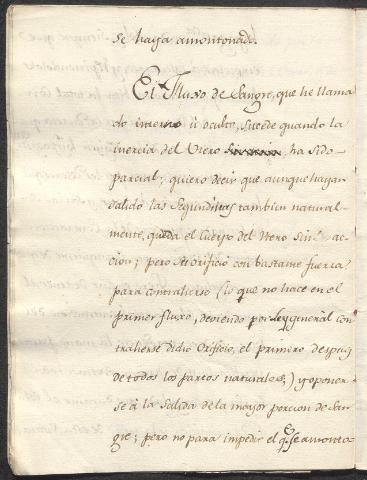 se haya amontonado.
El Fluxo de Sangre, que he llama
do interno ú oculto, sucede quando la
inercia del Utero ha sido
parcial; quiero decir que aunque hayan
salido las Segundinas tambien natural-
mente, queda el cuerpo del Utero Sin ac-
cion; pero su orificio con bastante fuerza
para contraherse (lo que no hace en el
primer fluxo, deviendo por ley general con
traherse dicho Orificio, el primero despues
de todos los partos naturales,) y oponer-
se à la salida de la mayor porcion de San-
gre; pero no para impedir el que se amonto-